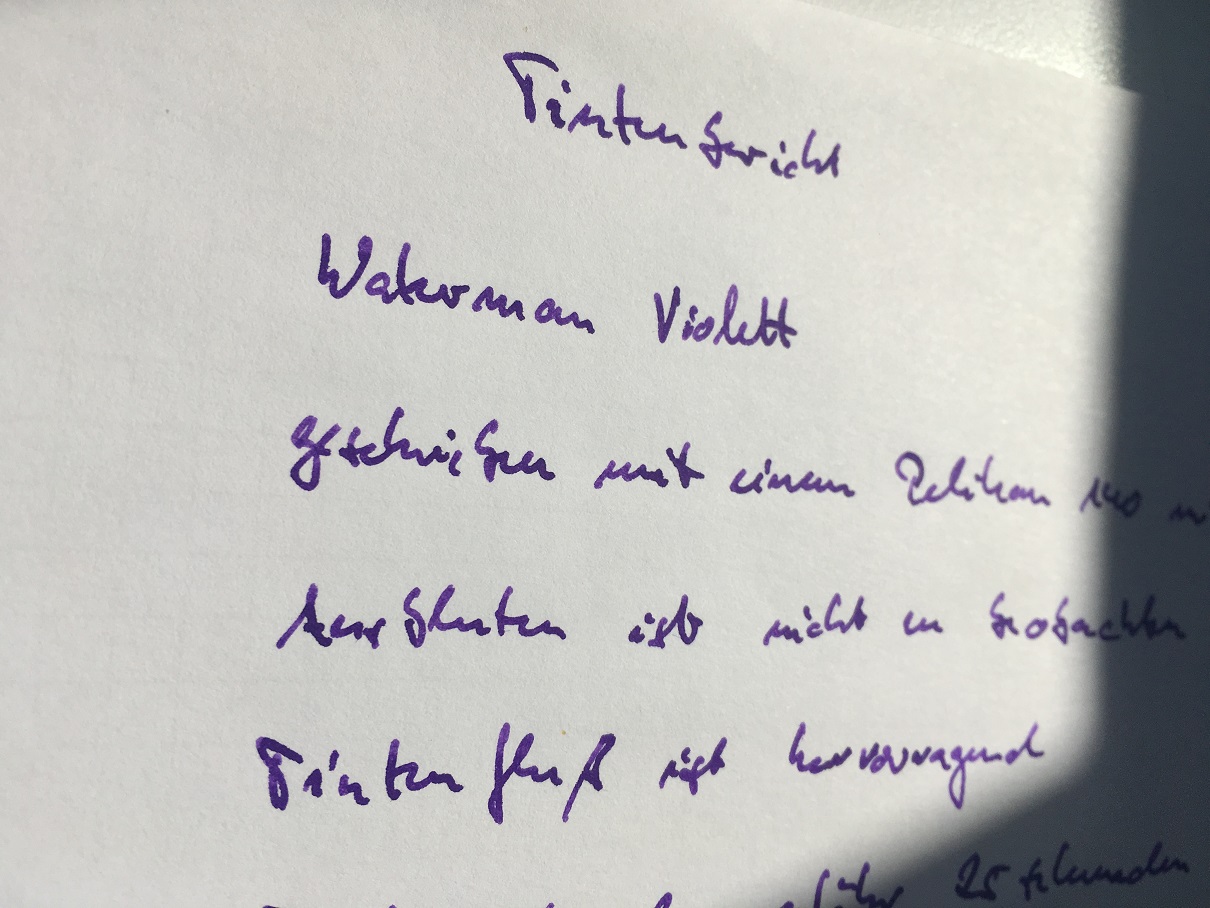 Tintenbericht
Waterman Violett
geschrieben mit einem Pelikan 140
Ausbluten ist nicht zu beobachten
Tintenfluß ist hervorragend
25 Sekunden